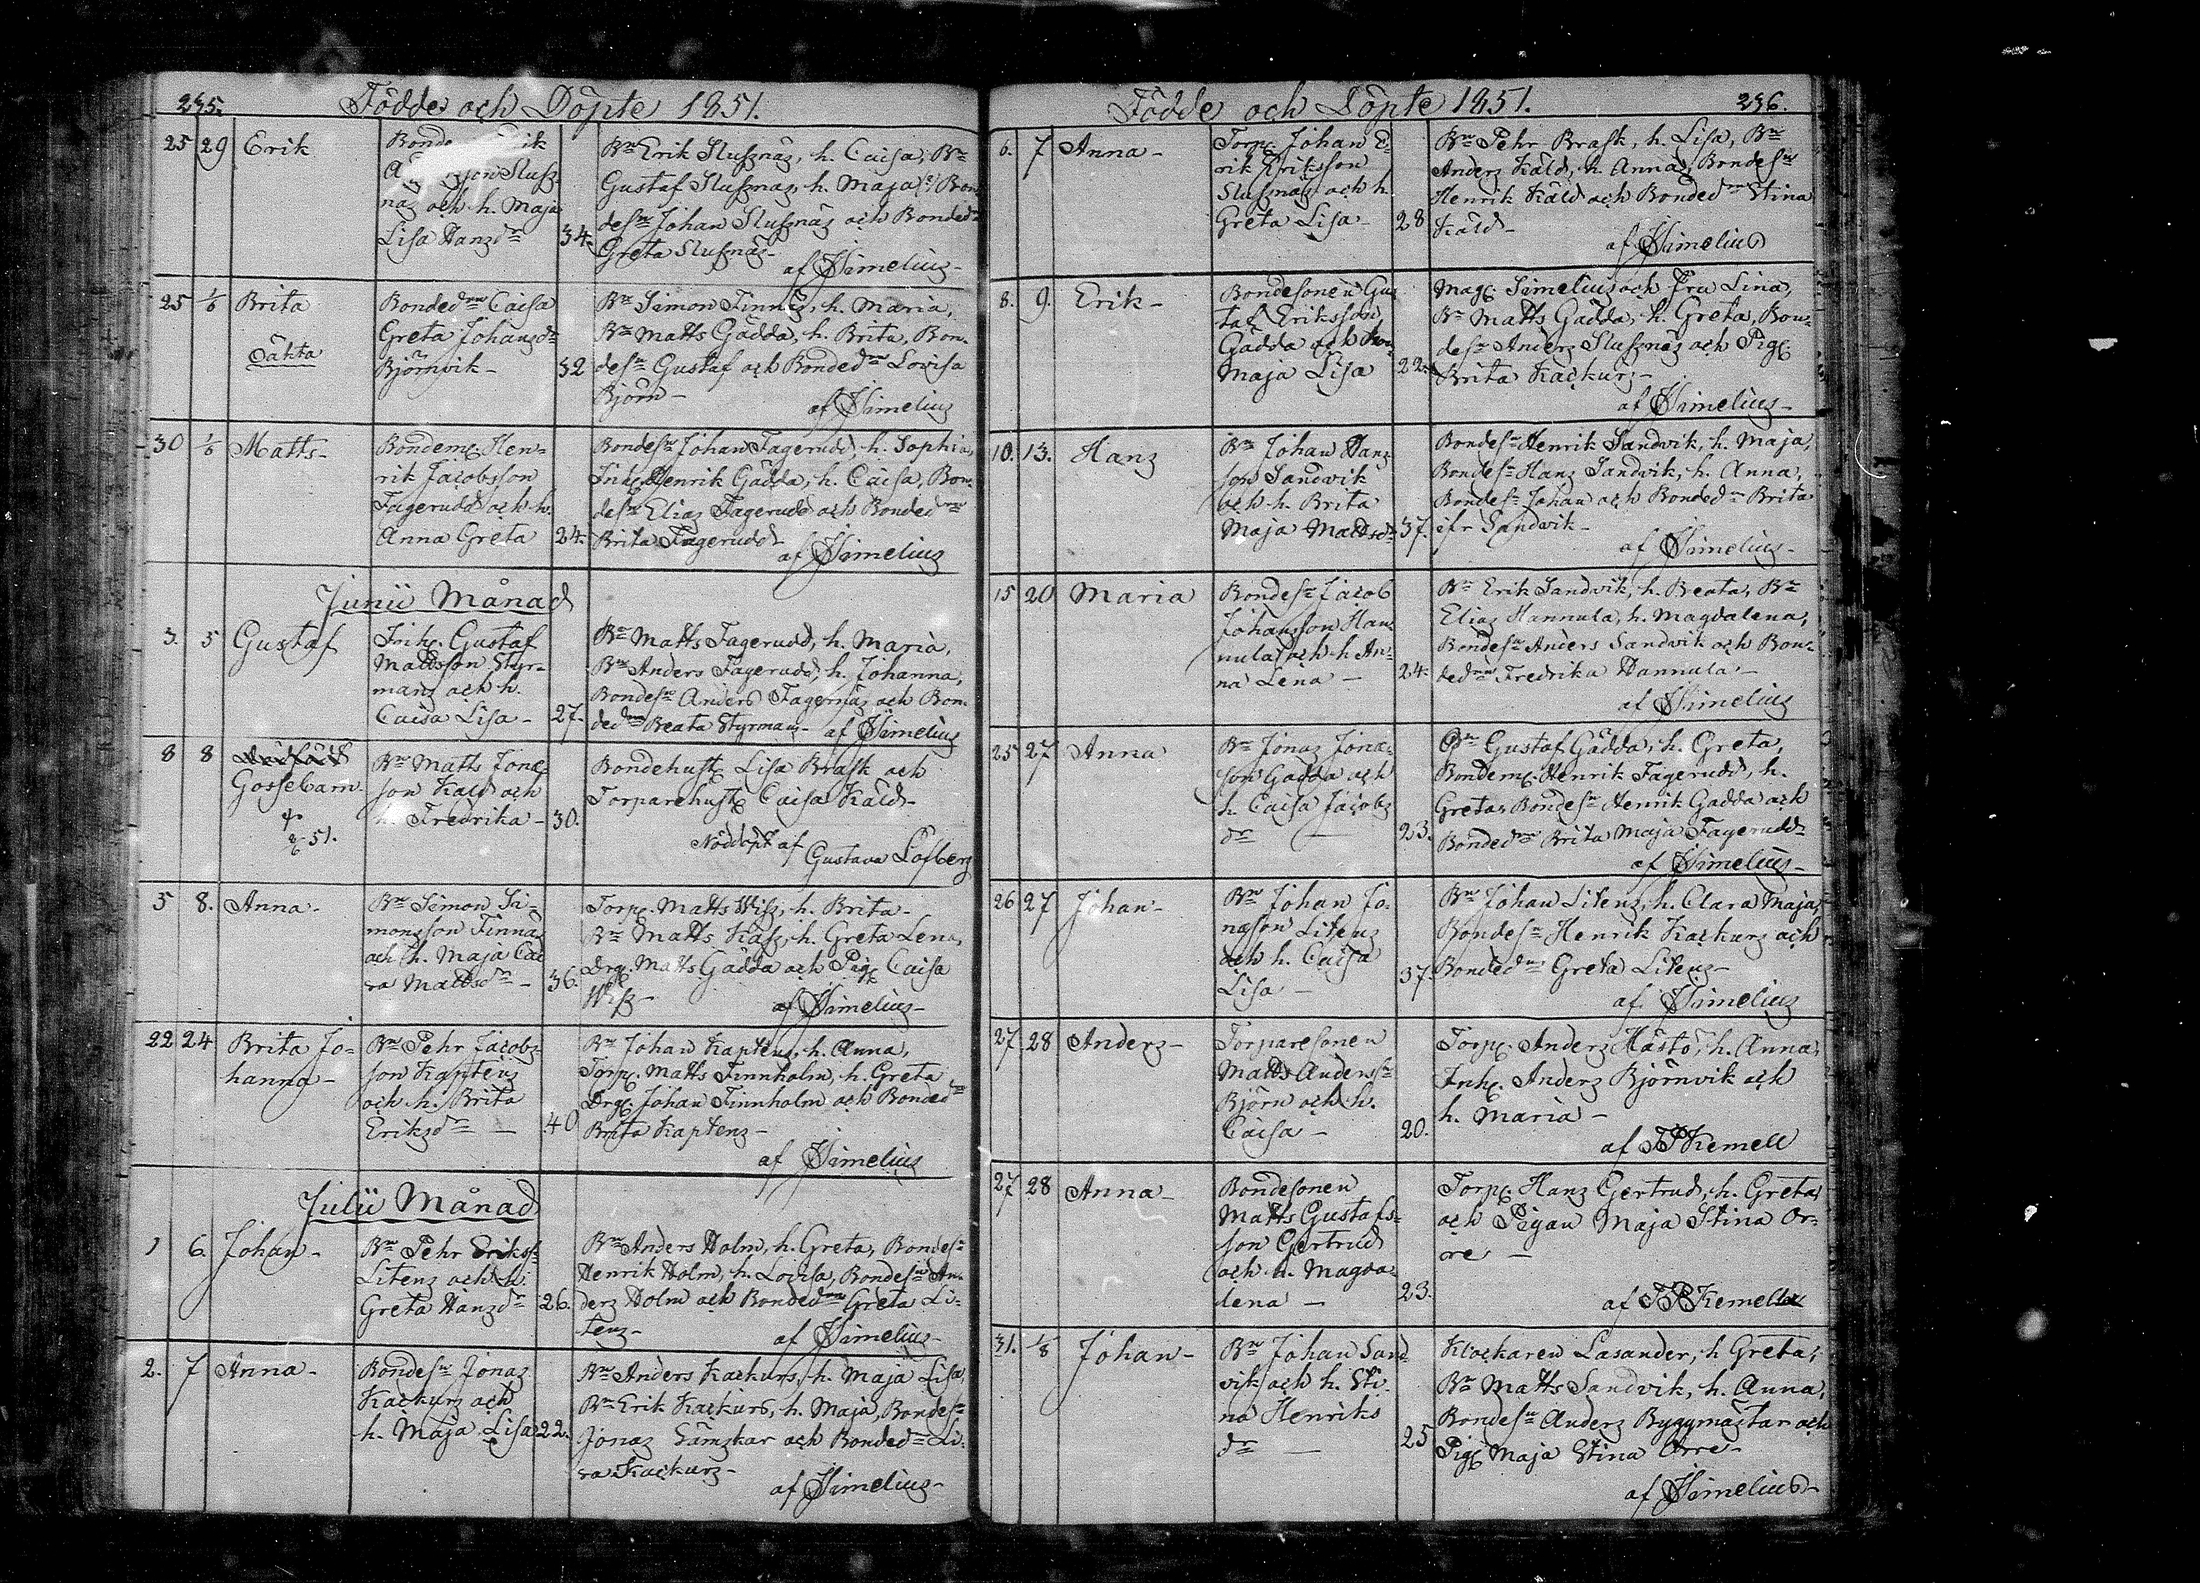 235.
Födde och Döpte 1851.
25 29 Erik
Bonde Erik
son Slußnäs och h. Maja
Lisa Hansdr 34.
Bn Erik Slußnäs, h. Caisa, Bn
Gustaf Slußnäs, h. Maja, Bon
desn Johan Slußnäs och Bondedn
Greta Slußnäs-
af JSimelius-
25 1/6 Brita
oäkta
Bondedrn Caisa
Greta Johansdr
Björnvik- 32
Bn Simon Finnäs, h. Maria,
Bn Matts Gädda, h. Brita, Bon-
desn Gustaf och Bondedrn Lovisa
Björn-
af JSimelius
30 1/6 Matts-
Bondem. Hen-
rik Jacobsson
Fagerudd och h.
Anna Greta 24.
Bondesn Johan Fagerudd, h. Sophia,
Inh. Henrik Gädda, h. Caisa, Bon-
desn Elias Fagerudd och Bondedrn
Brita Fagerudd-
af JSimelius
Junii Månad
3. 5 Gustaf
Inh. Gustaf
Mattsson Styr-
mans och h.
Caisa Lisa- 27.
Bn Matts Fagerudd, h. Maria,
Bn Anders Fagerudd, h. Johanna,
Bondesn Anders Fagernäs och Bon-
dedrn Beata Styrmans- af JSimelius
8 8
Gossebarn
† 8/6 51.
Bn Matts Jonas
son Kald och
h. Fredrika- 30.
Bondehust. Lisa Brask och
Torparehust. Caisa Käld-
Nöddöpt af Gustava Löfberg
5 8. Anna-
Bn Simon Si-
monsson Finnäs
och h. Maja Cai
sa Mattsdr- 36.
Torp. Matts Wiß, h. Brita-
Bn Matts Kaß, h. Greta Lena,
Drg. Matts Gädda och Pig. Caisa
Wiß-
af JSimelius-
22 24 Brita Jo-
hanna-
Bn Pehr Jacobs
son Kaptens
och h. Brita
Eriksdr- 40
Bn Johan Kaptens, h. Anna,
Torp. Matts Finnholm, h. Greta
Drg. Johan Finnholm och Bondedrn
Brita Kaptens-
af JSimelius
Julii Månad
1 6. Johan-
Bn Pehr Erikss-
Litens och h.
Greta Hansdr 26.
Bn Anders Holm, h. Greta, Bondesn
Henrik Holm, h. Lovisa, Bondesn An-
ders Holm och Bondedrn Greta Li-
tens-
af JSimelius-
2. 7 Anna-
Bondesn Jonas
Kackurs och
h. Maja Lisa 22.
Bn Anders Kackurs, h. Maja Lisa,
Bn Erik Kackurs, h. Maja, Bondesn
Jonas Sämskar och Bondedrn Li-
sa Kackurs-
af JSimelius-
Födde och Döpte 1851. 236.
6. 7 Anna-
Torp. Johan E-
rik Eriksson
Slußnäs och h.
Greta Lisa- 28
Bn Pehr Brask, h. Lisa, Bn
Anders Käld, h. Anna, Bondesn
Henrik Käld och Bondedrn Stina
Käld-
af JSimelius
8. 9. Erik-
Bondesonen Gus
taf Eriksson
Gädda och hu
Maja Lisa 22.
Mag. Simelius och Fru Lina,
Bn Matts Gädda, h. Greta, Bon-
desn Anders Slußnäs och Pig.
Brita Kackurs-
af JSimelius-
10. 13. Hans
Bn Johan Hans
son Sandvik
och h. Brita
Maja Mattsdr 37.
Bondesn Henrik Sandvik, h. Maja,
Bondesn Hans Sandvik, h. Anna,
Bondesn Johan och Bondedrn Brita
ifr Sandvik-
af JSimelius-
15 20 Maria
Bondesn Jacob
Johansson Han-
nula och h. An-
na Lena- 24.
Bn Erik Sandvik, h. Beata, Bn
Elias Hannula, h. Magdalena,
Bondesn Anders Sandvik och Bon-
dedrn Fredrika Hannula-
af JSimelius
25 27 Anna
Bn Jonas Jonas-
son Gädda och
h. Caisa Jacobs
dr- 23.
Bn Gustaf Gädda, h. Greta,
Bondem. Henrik Fagerudd, h.
Greta, Bondesn Henrik Gädda och
Bondedrn Brita Maja Fagerudd-
af JSimelius-
26 27 Johan-
Bn Johan Jo-
nasson Litens
och h. Caisa
Lisa- 37.
Bn Johan Litens, h. Clara Maja,
Bondesn Henrik Kackurs och
Bondedrn Greta Litens-
af JSimelius
27 28 Anders-
Torparesonen
Matts Anderss-
Björn och h.
Caisa- 20.
Torp. Anders Hästö, h. Anna,
Inh. Anders Björnvik och
h. Maria-
af Kemell
27 28 Anna-
Bondesonen
Matts Gustafs-
son Gertruds
och h. Magda-
lena- 23.
Torp. Hans Gertruds, h. Greta,
och Pigan Maja Stina Or-
re-
af Kemell
31. 1/8 Johan-
Bn Johan Sand-
vik och h. Sti-
na Henriks
dr- 25
Klockaren Lasander, h. Greta,
Bn Matts Sandvik, h. Anna,
Bondesn Anders Byggmästar och
Pig. Maja Stina Orre-
af JSimelius-